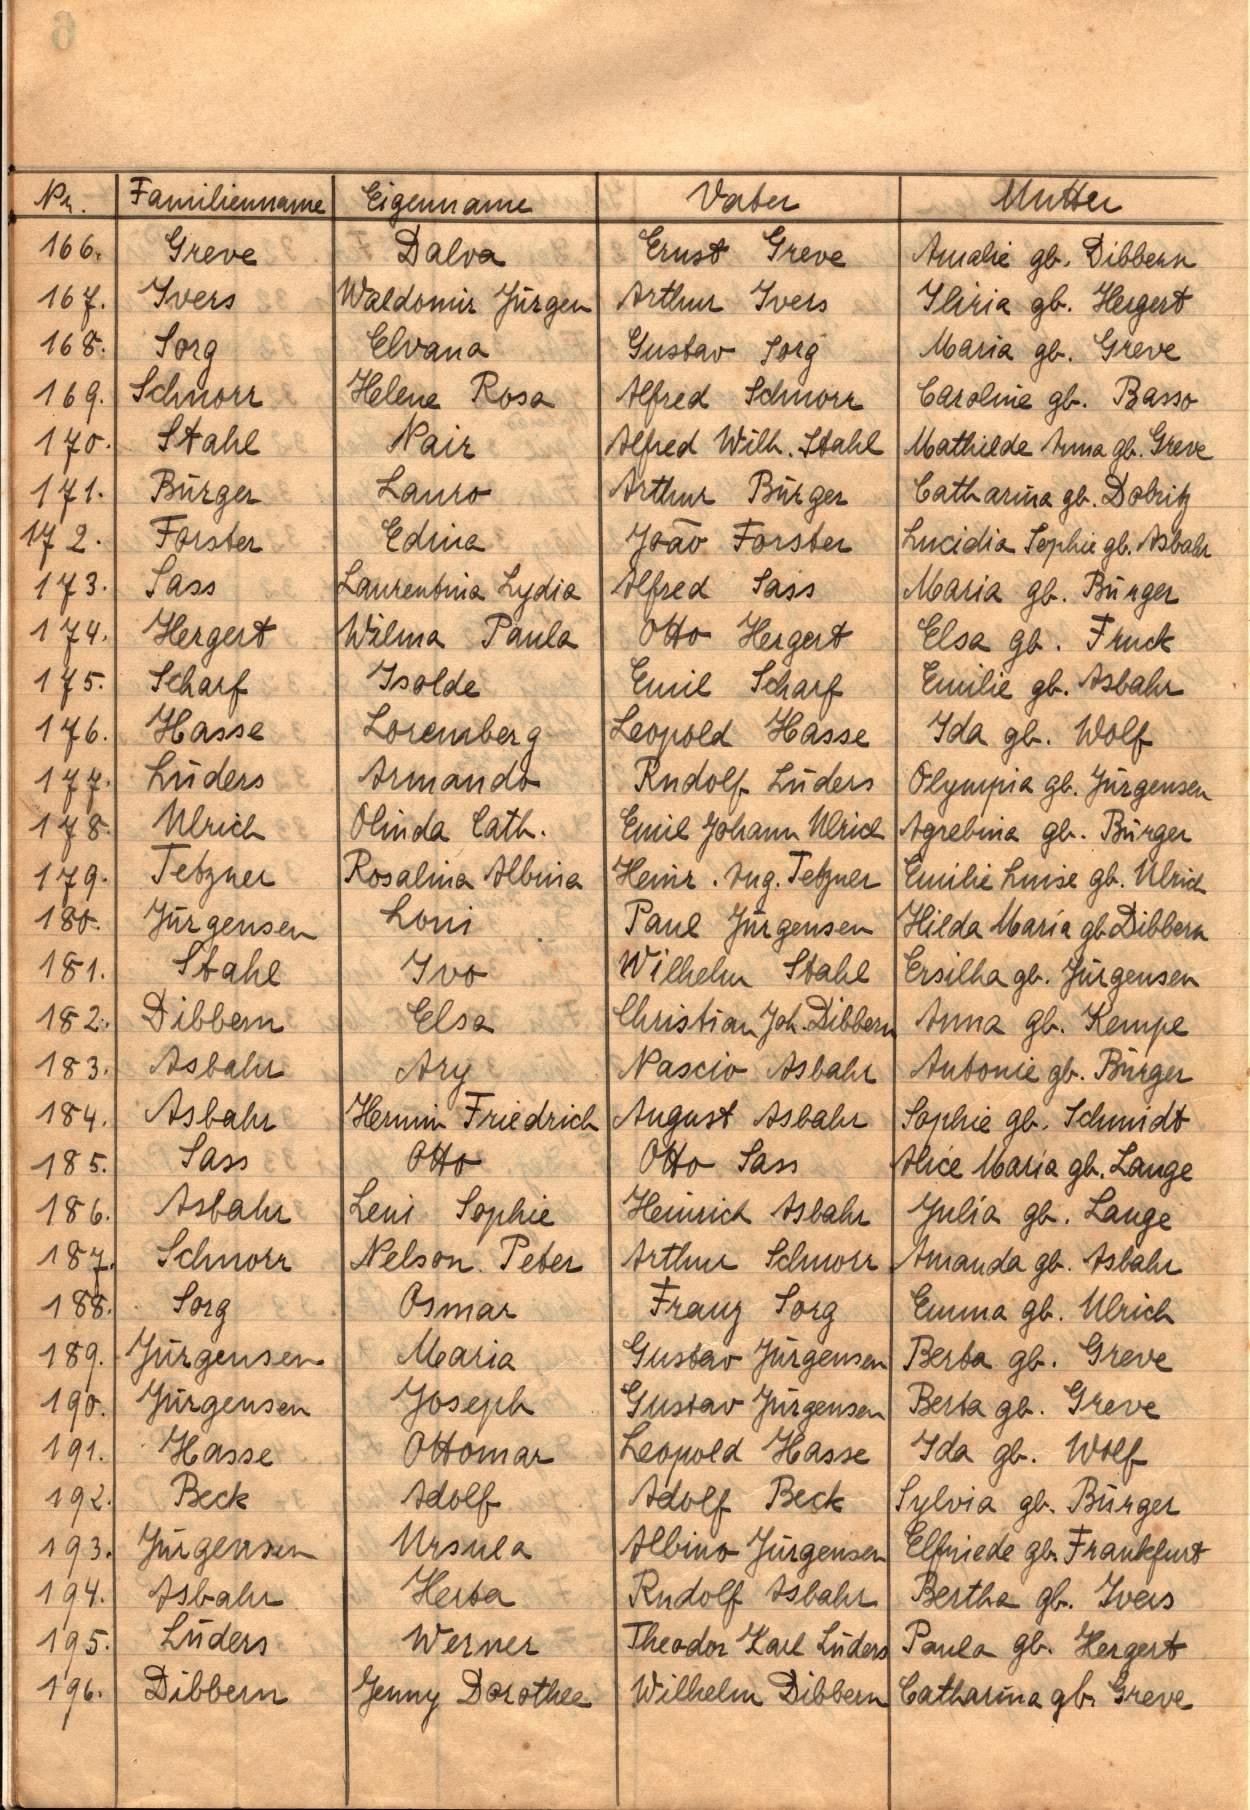 Nr. Familienname Eigenname Vater Mutter
166. Greve Dalva Ernst Greve Amalie gb. Dibbern
167. Ivers Waldomir Jürgen Arthur Ivers Iliria gb. Hergert
168. Sorg Elvana Gustav Sorg Maria gb. Greve
169. Schnorr Helene Rosa Alfred Schnorr Caroline gb. Basso
170. Stahl Nair Alfred Wilh. Stahl Mathilde Anna gb. Greve
171. Bürger Lauro Arthur Bürger Catharina gb. Dobritz
172. Forster Edina João Forster Lucidia Sophie gb. Asbahr
173. Sass Laurentina Lydia Alfred Sass Maria gb. Bürger
174. Hergert Wilma Paula Otto Hergert Elsa gb. Fruck
175. Scharf Isolde Emil Scharf Emilie gb. Asbahr
176. Hasse Loremberg Leopold Hasse Ida gb. Wolf
177. Lüders Armando Rudolf Lüders Olympia gb. Jürgensen
178. Ulrich Olinda Cath. Emil Johann Ulrich Agrebina gb. Bürger
179. Tetzner Rosalina Albina Heinr. Aug. Tetzner Emilie Luise gb. Ulrich
180. Jürgensen Loni Paul Jürgensen Hilda Maria gb Dibbern
181. Stahl Ivo Wilhelm Stahl Ersilha gb. Jürgensen
182. Dibbern Elsa Christian Joh. Dibbern Anna gb. Kempe
183. Asbahr Ary Nascio Asbahr Antonie gb. Bürger
184. Asbahr Hermin Friedrich August Asbahr Sophie gb. Schmidt
185. Sass Otto Otto Sass Alice Maria gb. Lange
186. Asbahr Leni Sophie Heinrich Asbahr Julia gb. Lange
187. Schnorr Nelson Peter Arthur Schnorr Amanda gb. Asbahr
188. Sorg Osmar Franz Sorg Emma gb. Ulrich
189. Jürgensen Maria Gustav Jürgensen Berta gb. Greve
190. Jürgensen Joseph Gustav Jürgensen Berta gb. Greve
191. Hasse Ottomar Leopold Hasse Ida gb. Wolf
192. Beck Adolf Adolf Beck Sylvia gb. Bürger
193. Jürgensen Ursula Albino Jürgensen Elfriede gb. Frankfurt
194. Asbahr Herta Rudolf Asbahr Bertha gb. Ivers
195. Lüders Werner Theodor Karl Lüders Paula gb. Hergert
196. Dibbern Jenny Dorothee Wilhelm Dibbern Catharina gb. Greve